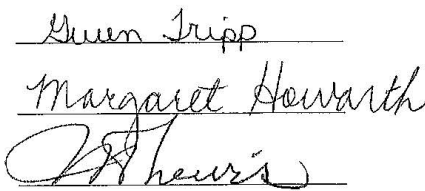 Gwen Tripp
Margaret Howarth